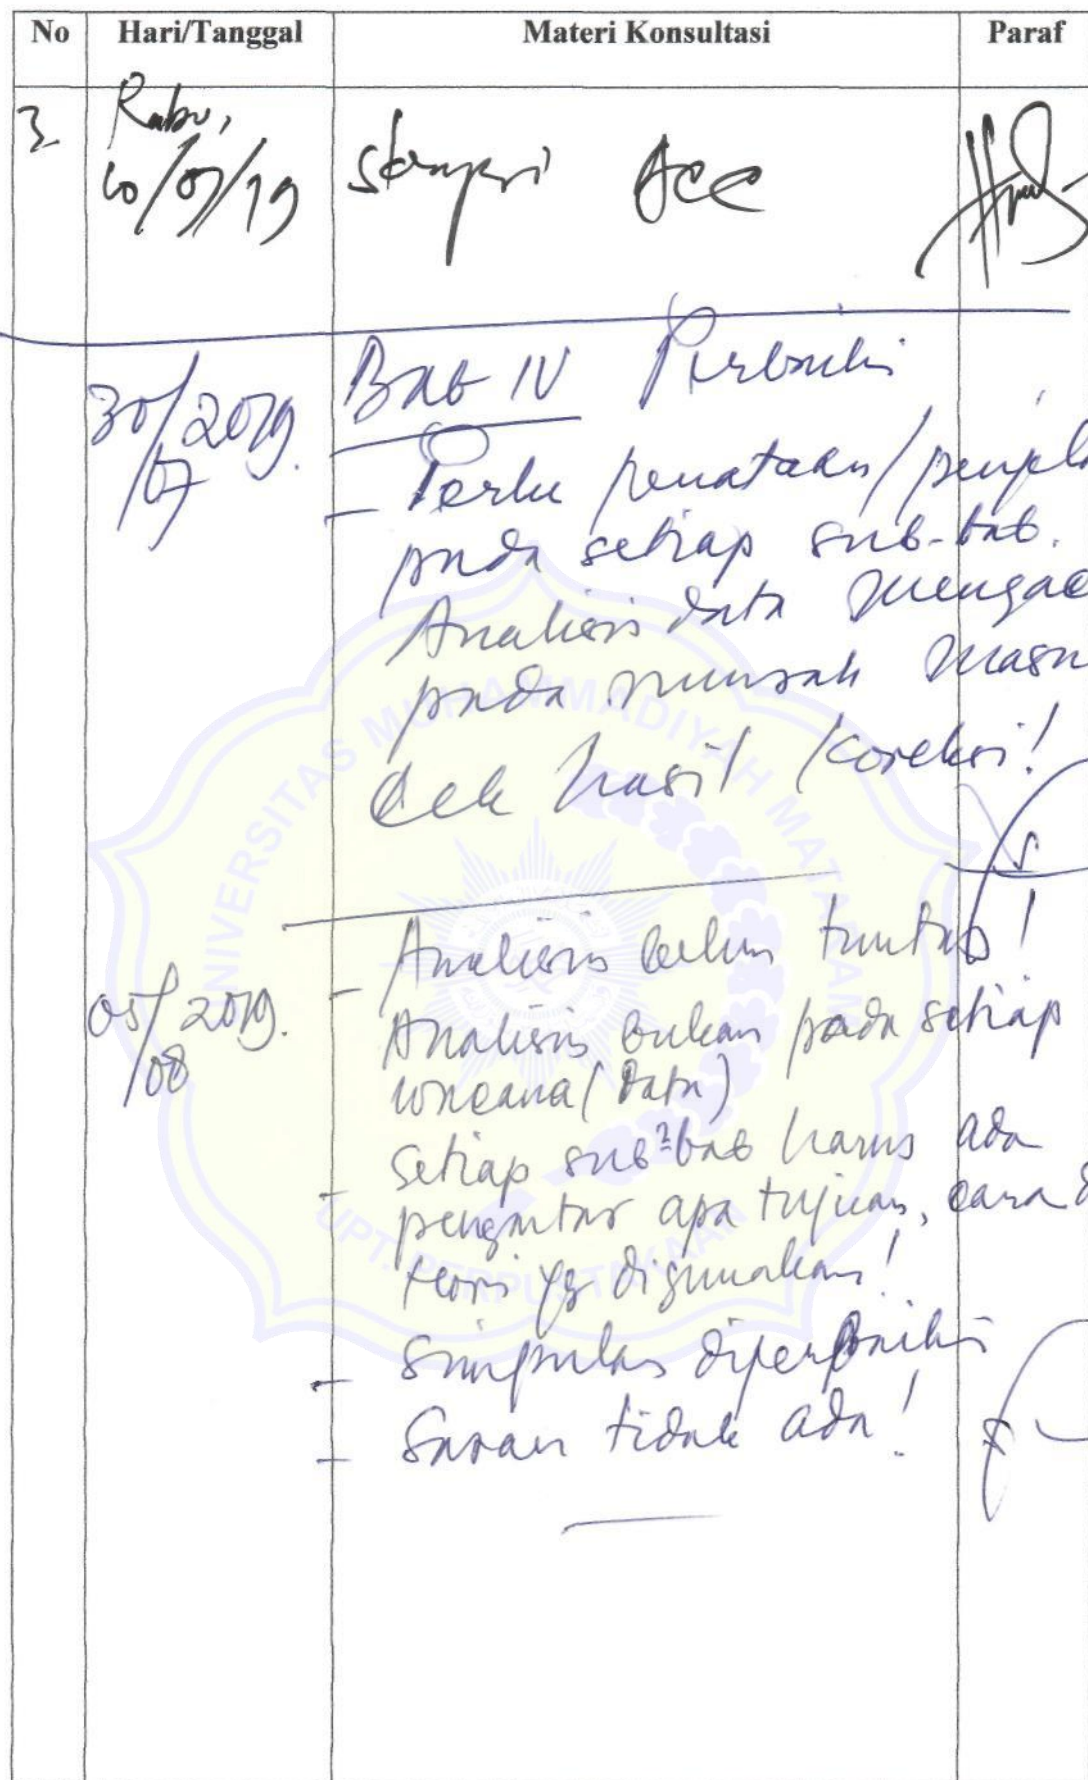 No Hari/Tanggal Materi Konsultasi Paraf
3. Rabu,
10/07/19 skripsi Acc
30/07 2019. Bab IV Perbaiki
- Perlu penataan/penjela
pada setiap sub-bab.
Analisis data mengac
pada rumusan masa
Cek hasil koreksi!
05/08 2019. - Analisis belum tuntas!
Analisis bukan pada setiap
wacana (Data)
- Setiap sub-bab harus ada
pengantar apa tujuan, cara d
teori yg digunakan!
- Simpulan diperbaiki
- Saran tidak ada!
UNIVERSITAS MUHAMMADIYAH MATARAM
UPT. PERPUSTAKAAN